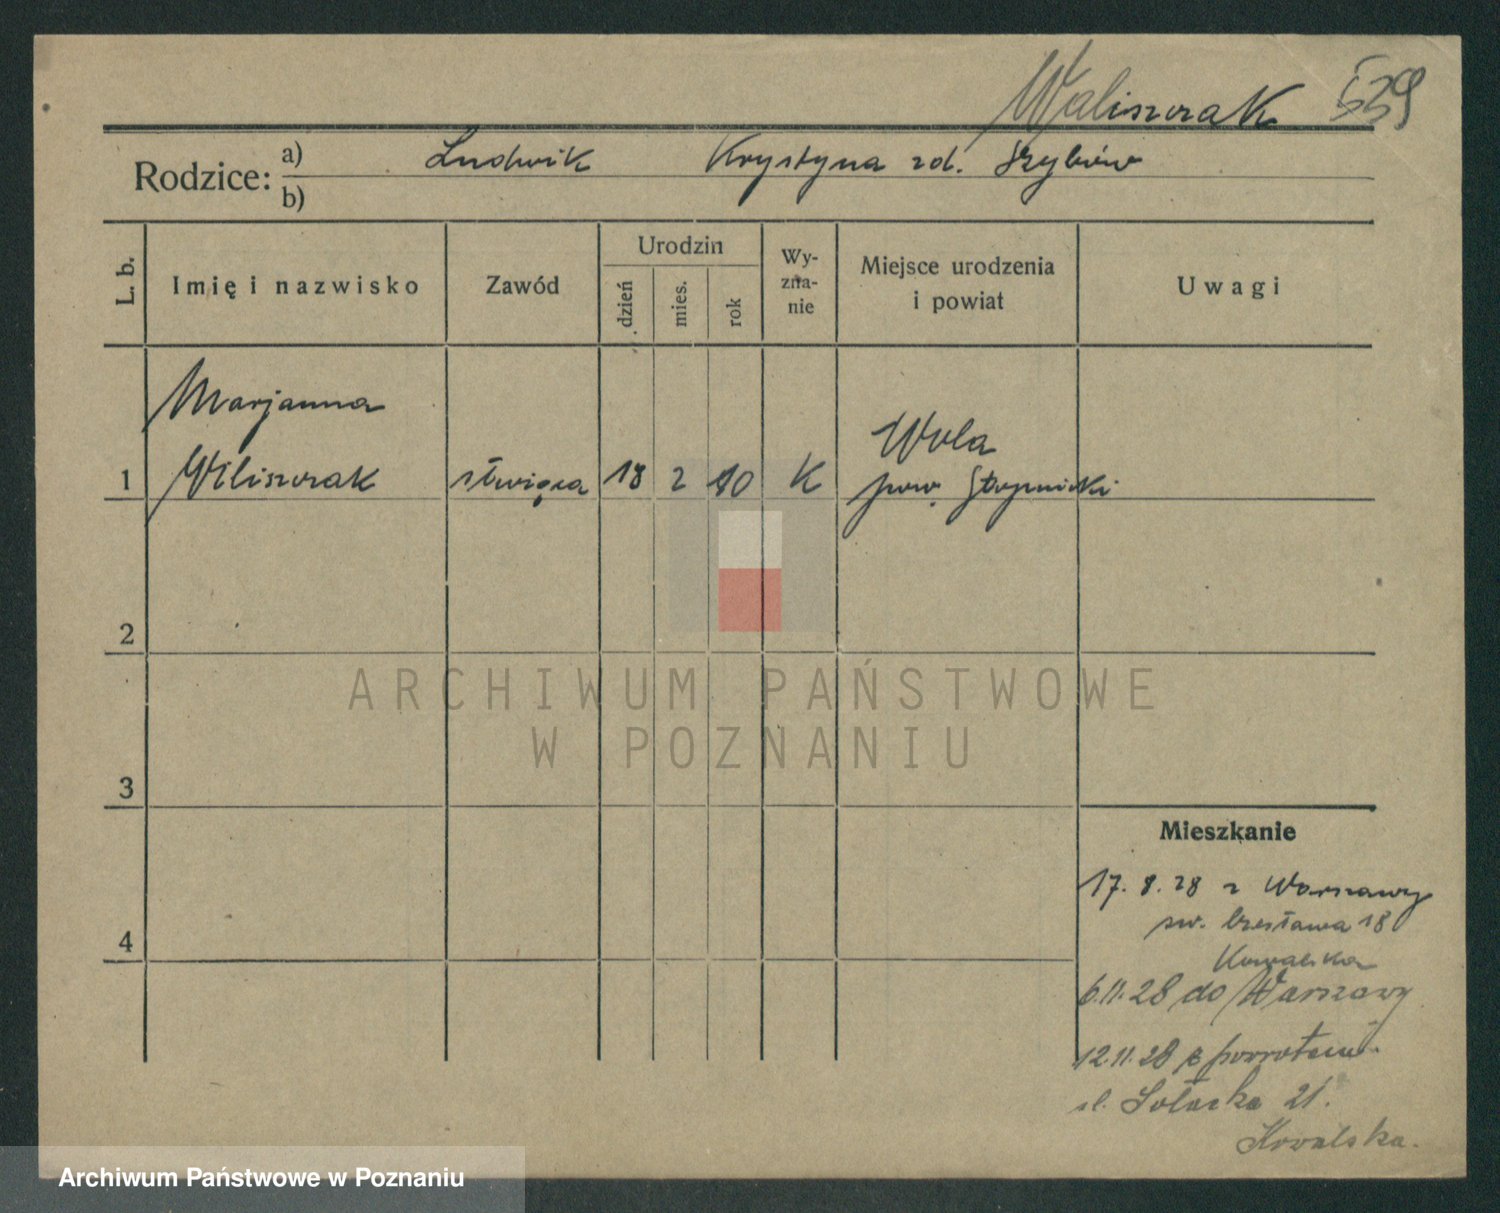 Waliszczak 539
Rodzice: a) Ludwik Krystyna zd.
b)
L. b. Imię i nazwisko Zawód Urodzin dzień mies. rok Wy-zna-nie Miejsce urodzenia i powiat Uwagi
Marjanna
Wola
1 służąca 18 2 10 K pow. Stopnicki
2
ARCHIWUM PAŃSTWOWE
W POZNANIU
3
Mieszkanie
17. 8. 28 z Warszawy
św. Czesława 18
4
Kowalska
6.11.28 do Warszawy
12.11.28 z powrotem
ul. Sołacka 21.
Kowalska.
Archiwum Państwowe w Poznaniu